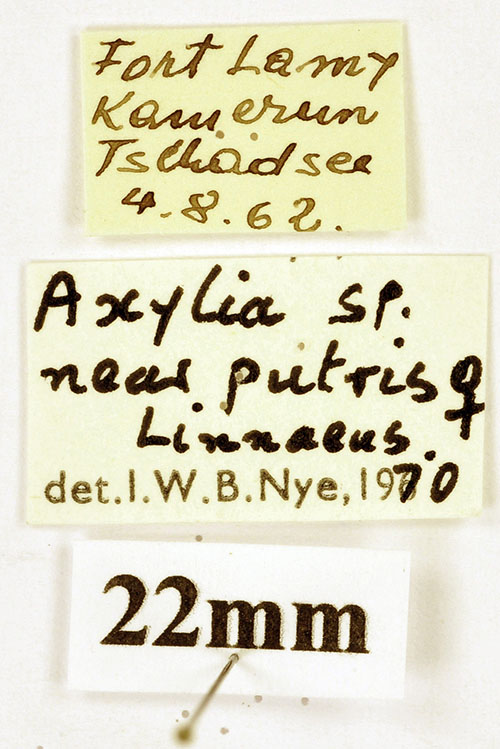 Fort Lamy
Kamerun
Tschadsee
4.8.62.
Axylia sp.
near putris ♀
Linnaeus.
det.I.W.B.Nye, 1970
22mm